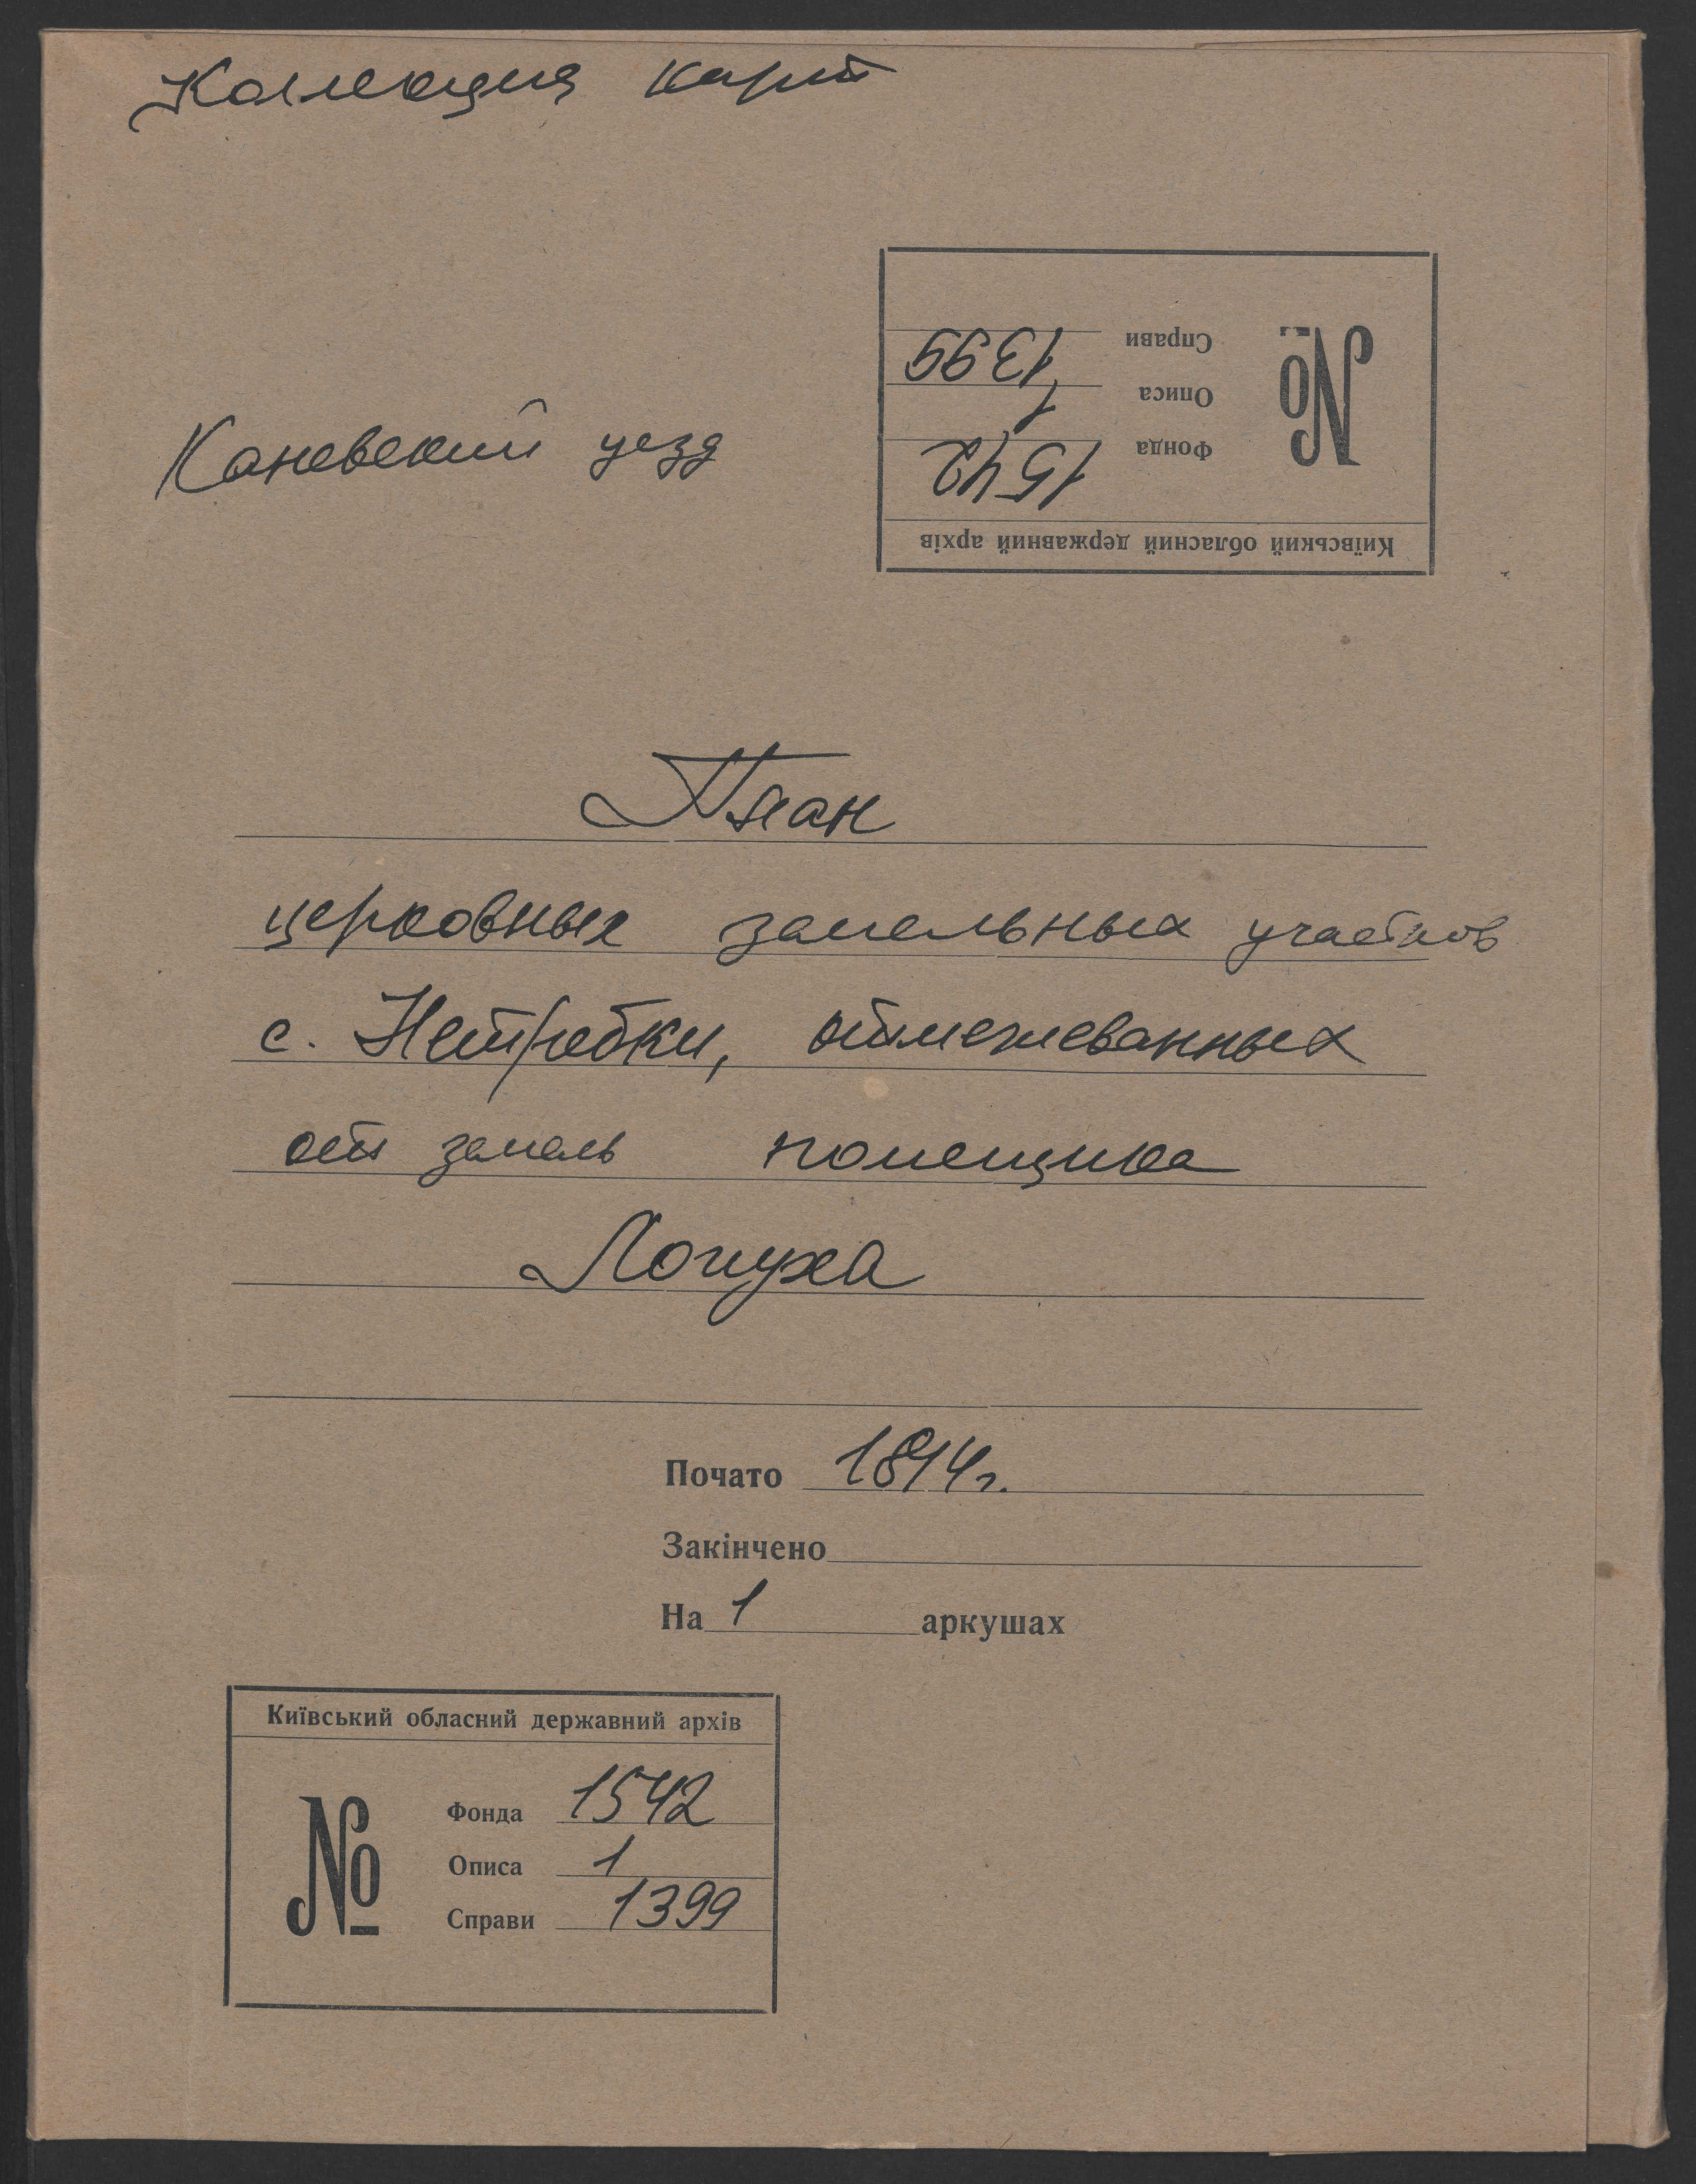 Коллекция карт
Киівський обласний державний архів
№
Фонда 1542
Описа 1
Справи 1399
Каневский уезд
План
церковных земельных участков
с. Нетребки, отмежеванных
от земель помещика
Лопуха
Почато 1814г.
Закінчено
На 1 аркушах
Київський обласний державний архів
№
Фонда 1542
Описа 1
Справи 1399